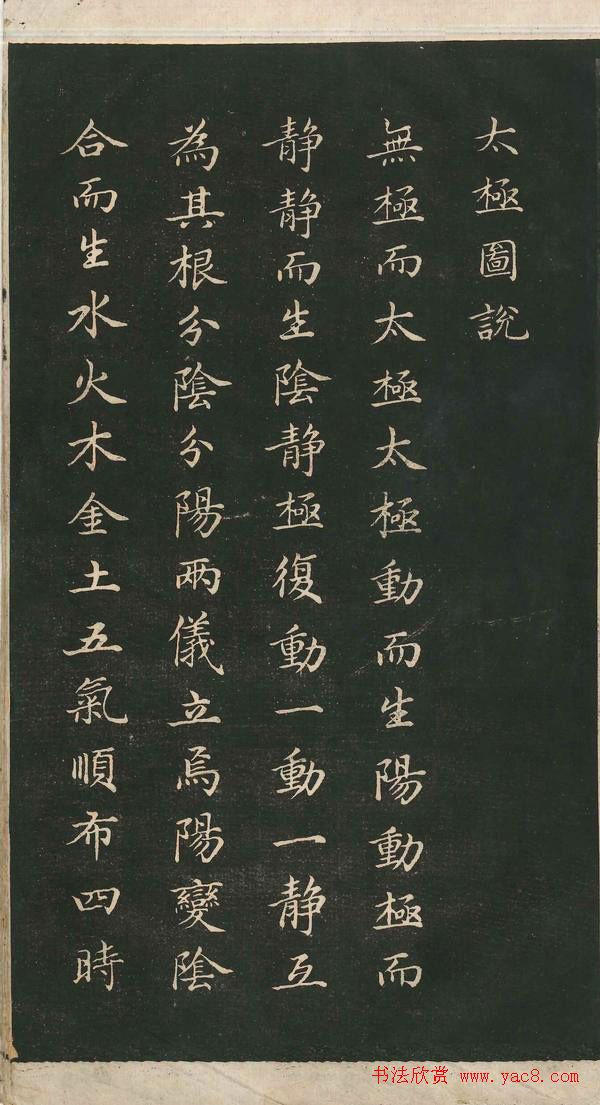 太極圖說
無極而太極太極動而生陽動極而
静静而生陰静極復動一動一静互
為其根分陰分陽兩儀立焉陽變陰
合而生水火木金土五氣順布四時
书法欣赏 www.yac8.com